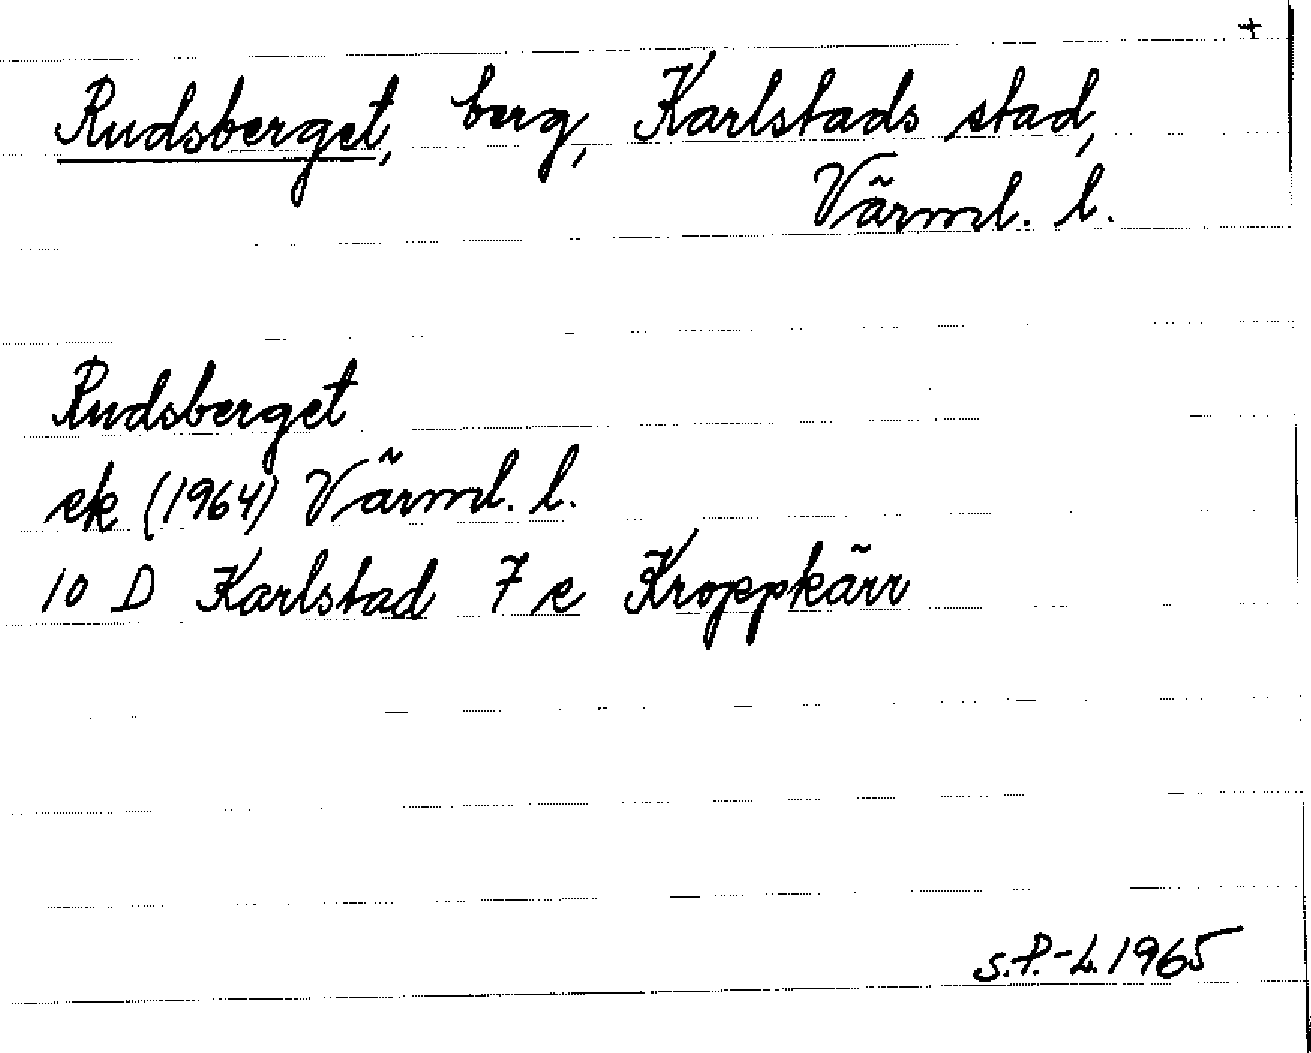 +
Rudsberget, berg, Karlstads stad,
Värml. l.
Rudsberget
ek (1964) Värml. l.
10 D Karlstad 7 e Kroppkärr
S.P.-L. 1965